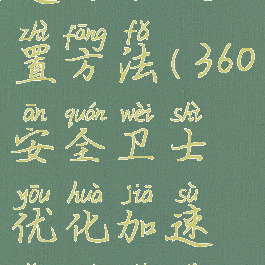 zhì fāng fǎ
置方法(360
ān quán wèi shì
安全卫士
yōu huà jiā sù
优化加速